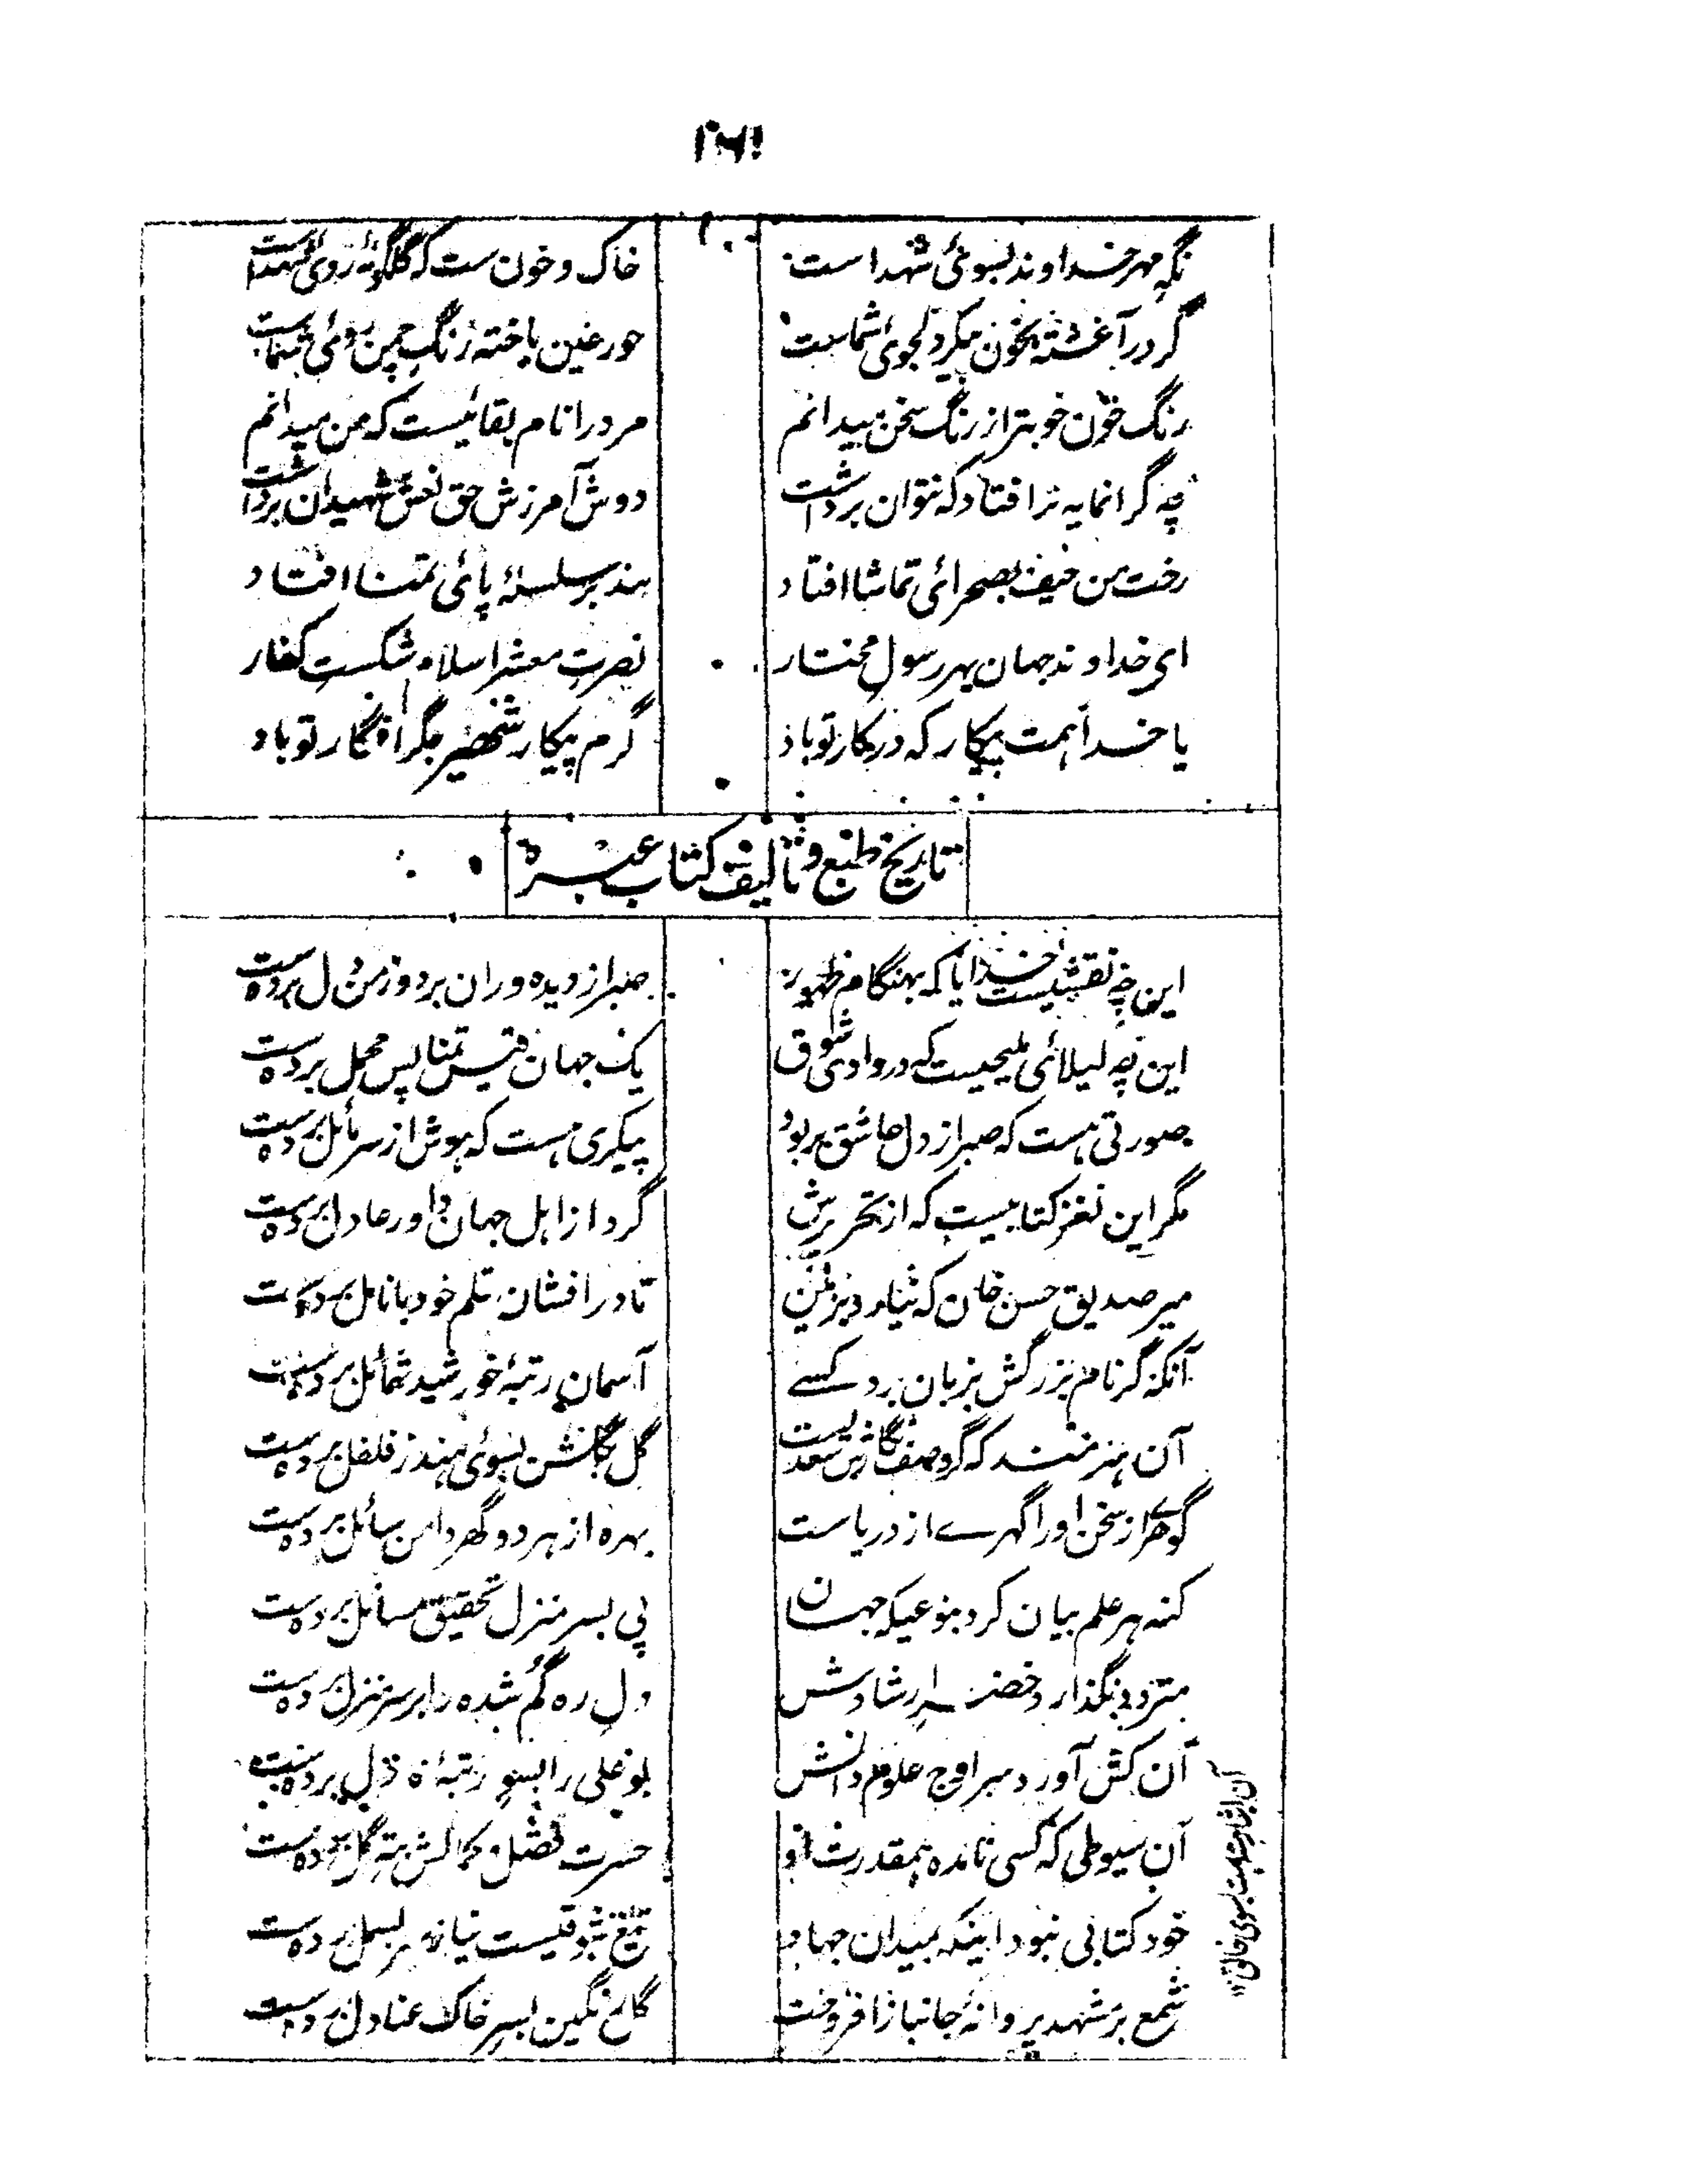 ۲۶۱
نگه مهر خداوند بسوئی شهداست خاک و خون ست که گلگونهٔ روی شهداست
گر در آغشته بخون میکرد لجوی شماست حور عین باخته رنگ چمن روئی شماست
رنگ خون خوبتر از رنگ سخن میدانم مرد را نام بقائیست که من میدانم
چه گرانمایه نر افتاد که نتوان برداشت دوش آمرزش حق نعش شهیدان برداشت
رخت من حیف بصحرائی تماشا افتاد هند بر سلسلهٔ پائی تمنا افتاد
ای خداوند جهان بهر رسول مختار نصرت معشر اسلام شکست کفار
یا خدا همت پیکار که در کار تو باد گرم پیکار شهنشیر جگر افگار تو باد
تاریخ طبع و تالیف کتاب عبره
این چه نقشیست خدایا که بهنگام ظهور صبر از دیده وران برد و زمن دل بردست
این چه لیلائی ملیحیست که در وادی شوق یک جهان قیس تمنا پس محمل بردست
صورتی هست که صبر از دل عاشق بربود پیکری هست که هوش از سر مائل بردست
مگر این نغز کتابیست که از تحریرش گرد از اهل جهان داور عادل بردست
میر صدیق حسن خان که نیاورد بزمن تا در افشان قلم خود بانامل بردست
آنکه گر نام بزرگش بزبان برد کسے آسمان رتبهٔ خورشید شمائل بردست
آن هنرمند که گر وصف نگارش سعدیست گل بگلشن بسوئی هند ز فلفل بردست
گوهرے از سخن او را گهرے از دریاست بهره از هر دو گهر دامن سائل بردست
کنه هر علم بیان کرد بنوعیکه جهان پی بسر منزل تحقیق مسائل بردست
متردد نگذارد خضر ارشادش دل ره گم شده را بر سر منزل بردست
آن کش آورد بر اوج علوم دانش بو علی را بسو رتبهٔ اذل بردست
آن سیوطی که کسی نامده همقدرت او حسرت فضل و کمالش بته گل بردست
خود کتابی نبود اینکه بمیدان جهاد تیغ شوقیست نیازه بر بسمل بردست
شمع بر مشهد پروانهٔ جانباز افروخت گل رنگین بسر خاک عنادل بردست